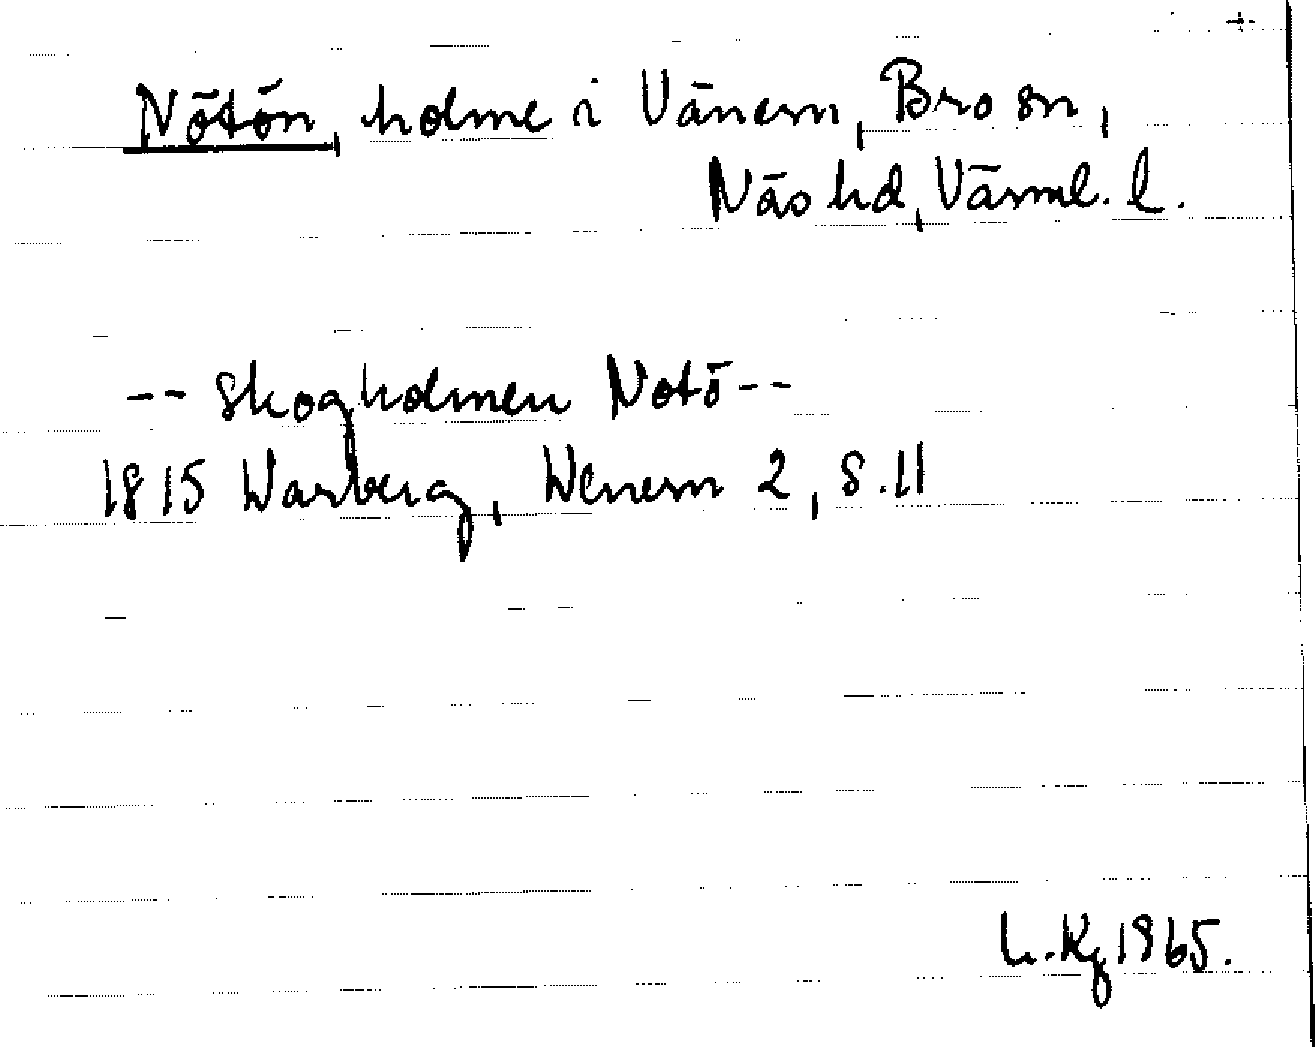 Nötön, holme i Vänern, Bro sn,
Näs hd, Värml. l.
-- Skogholmen Notö --
1815 Warberg, Wenern 2, S. 11
L. Kg 1965.